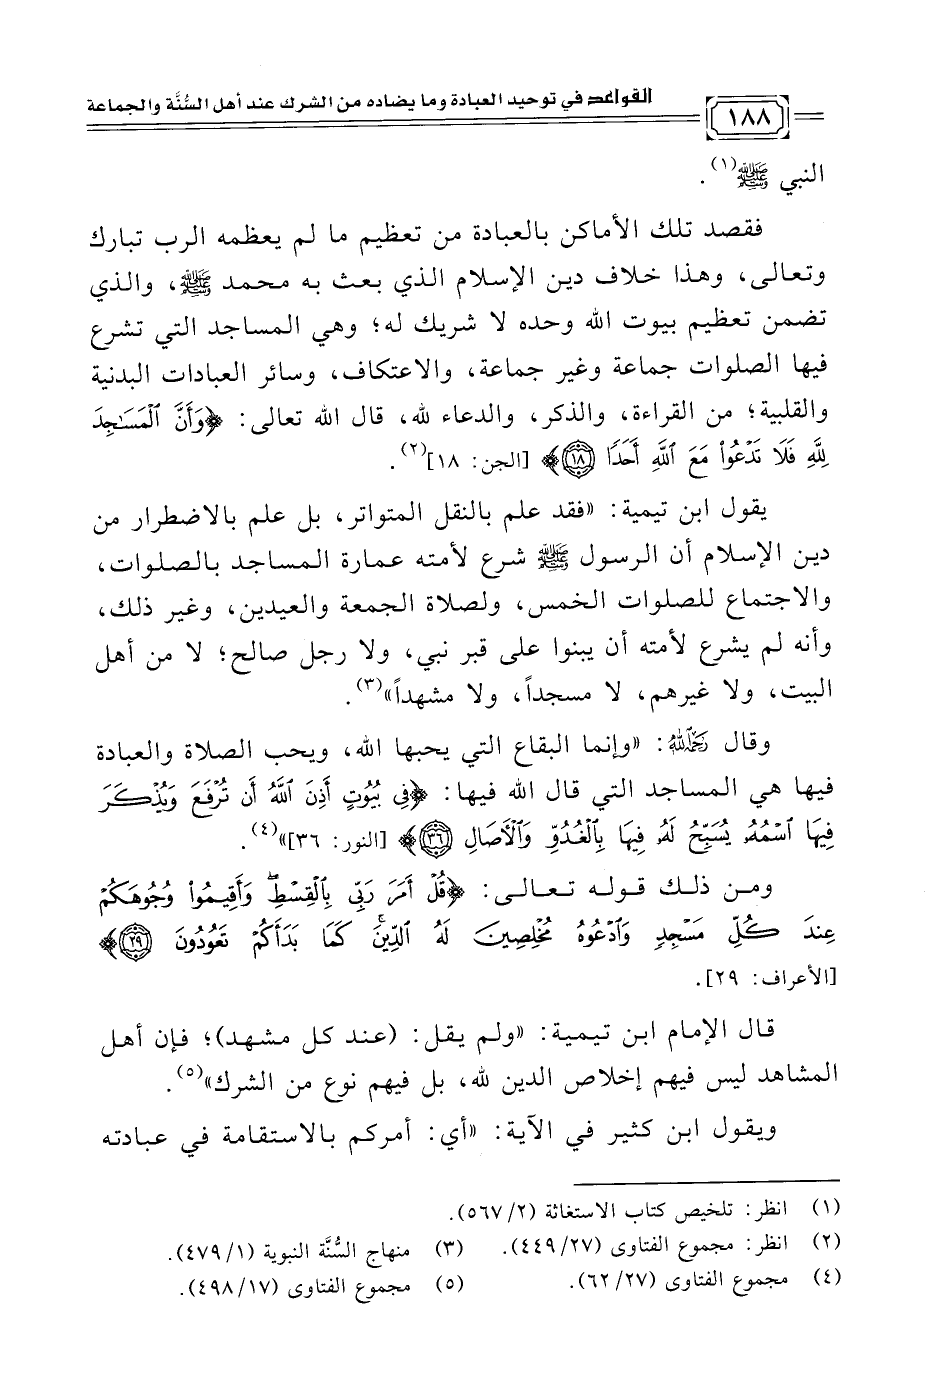 القواعد في توحيد العبادة وما يضاده من الشرك عند أهل السُّنَّة والجماعة
١٨٨
النبي ﷺ(١).
فقصد تلك الأماكن بالعبادة من تعظيم ما لم يعظمه الرب تبارك
وتعالى، وهذا خلاف دين الإسلام الذي بعث به محمد ﷺ، والذي
تضمن تعظيم بيوت الله وحده لا شريك له؛ وهي المساجد التي تشرع
فيها الصلوات جماعة وغير جماعة، والاعتكاف، وسائر العبادات البدنية
والقلبية؛ من القراءة، والذكر، والدعاء لله، قال الله تعالى: ﴿وَأَنَّ ٱلْمَسَٰجِدَ
لِلَّهِ فَلَا تَدْعُوا۟ مَعَ ٱللَّهِ أَحَدًا ١٨﴾ [الجن: ١٨](٢).
يقول ابن تيمية: «فقد علم بالنقل المتواتر، بل علم بالاضطرار من
دين الإسلام أن الرسول ﷺ شرع لأمته عمارة المساجد بالصلوات،
والاجتماع للصلوات الخمس، ولصلاة الجمعة والعيدين، وغير ذلك،
وأنه لم يشرع لأمته أن يبنوا على قبر نبي، ولا رجل صالح؛ لا من أهل
البيت، ولا غيرهم، لا مسجداً، ولا مشهداً»(٣).
وقال رَحِمَهُ ٱللَّهُ: «وإنما البقاع التي يحبها الله، ويحب الصلاة والعبادة
فيها هي المساجد التي قال الله فيها: ﴿فِى بُيُوتٍ أَذِنَ ٱللَّهُ أَن تُرْفَعَ وَيُذْكَرَ
فِيهَا ٱسْمُهُۥ يُسَبِّحُ لَهُۥ فِيهَا بِٱلْغُدُوِّ وَٱلْـَٔاصَالِ ٣٦﴾ [النور: ٣٦]»(٤).
ومن ذلك قوله تعالى: ﴿قُلْ أَمَرَ رَبِّى بِٱلْقِسْطِ ۖ وَأَقِيمُوا۟ وُجُوهَكُمْ
عِندَ كُلِّ مَسْجِدٍ وَٱدْعُوهُ مُخْلِصِينَ لَهُ ٱلدِّينَ ۚ كَمَا بَدَأَكُمْ تَعُودُونَ ٢٩﴾
[الأعراف: ٢٩].
قال الإمام ابن تيمية: «ولم يقل: (عند كل مشهد)؛ فإن أهل
المشاهد ليس فيهم إخلاص الدين لله، بل فيهم نوع من الشرك»(٥).
ويقول ابن كثير في الآية: «أي: أمركم بالاستقامة في عبادته
(١) انظر: تلخيص كتاب الاستغاثة (٢/ ٥٦٧).
(٢) انظر: مجموع الفتاوى (٢٧/ ٤٤٩). (٣) منهاج السُّنَّة النبوية (١/ ٤٧٩).
(٤) مجموع الفتاوى (٢٧/ ٦٢). (٥) مجموع الفتاوى (١٧/ ٤٩٨).